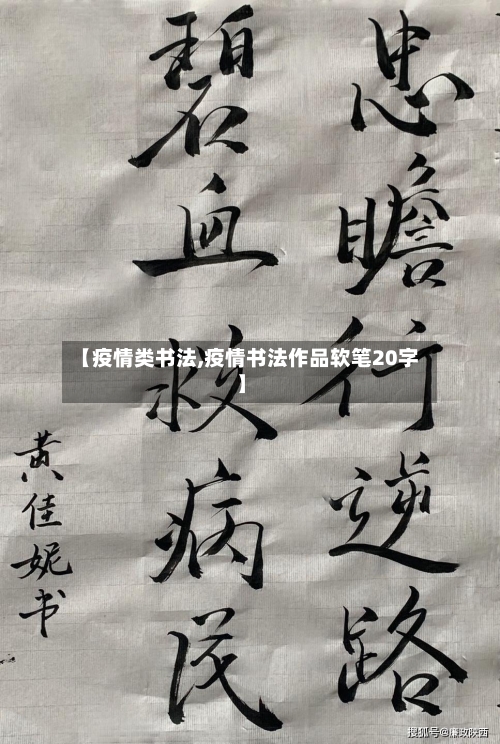 忠瞻行逆路
碧血救病民
黄佳妮书
【疫情类书法,疫情书法作品软笔20字
】
搜狐号@廉政陕西